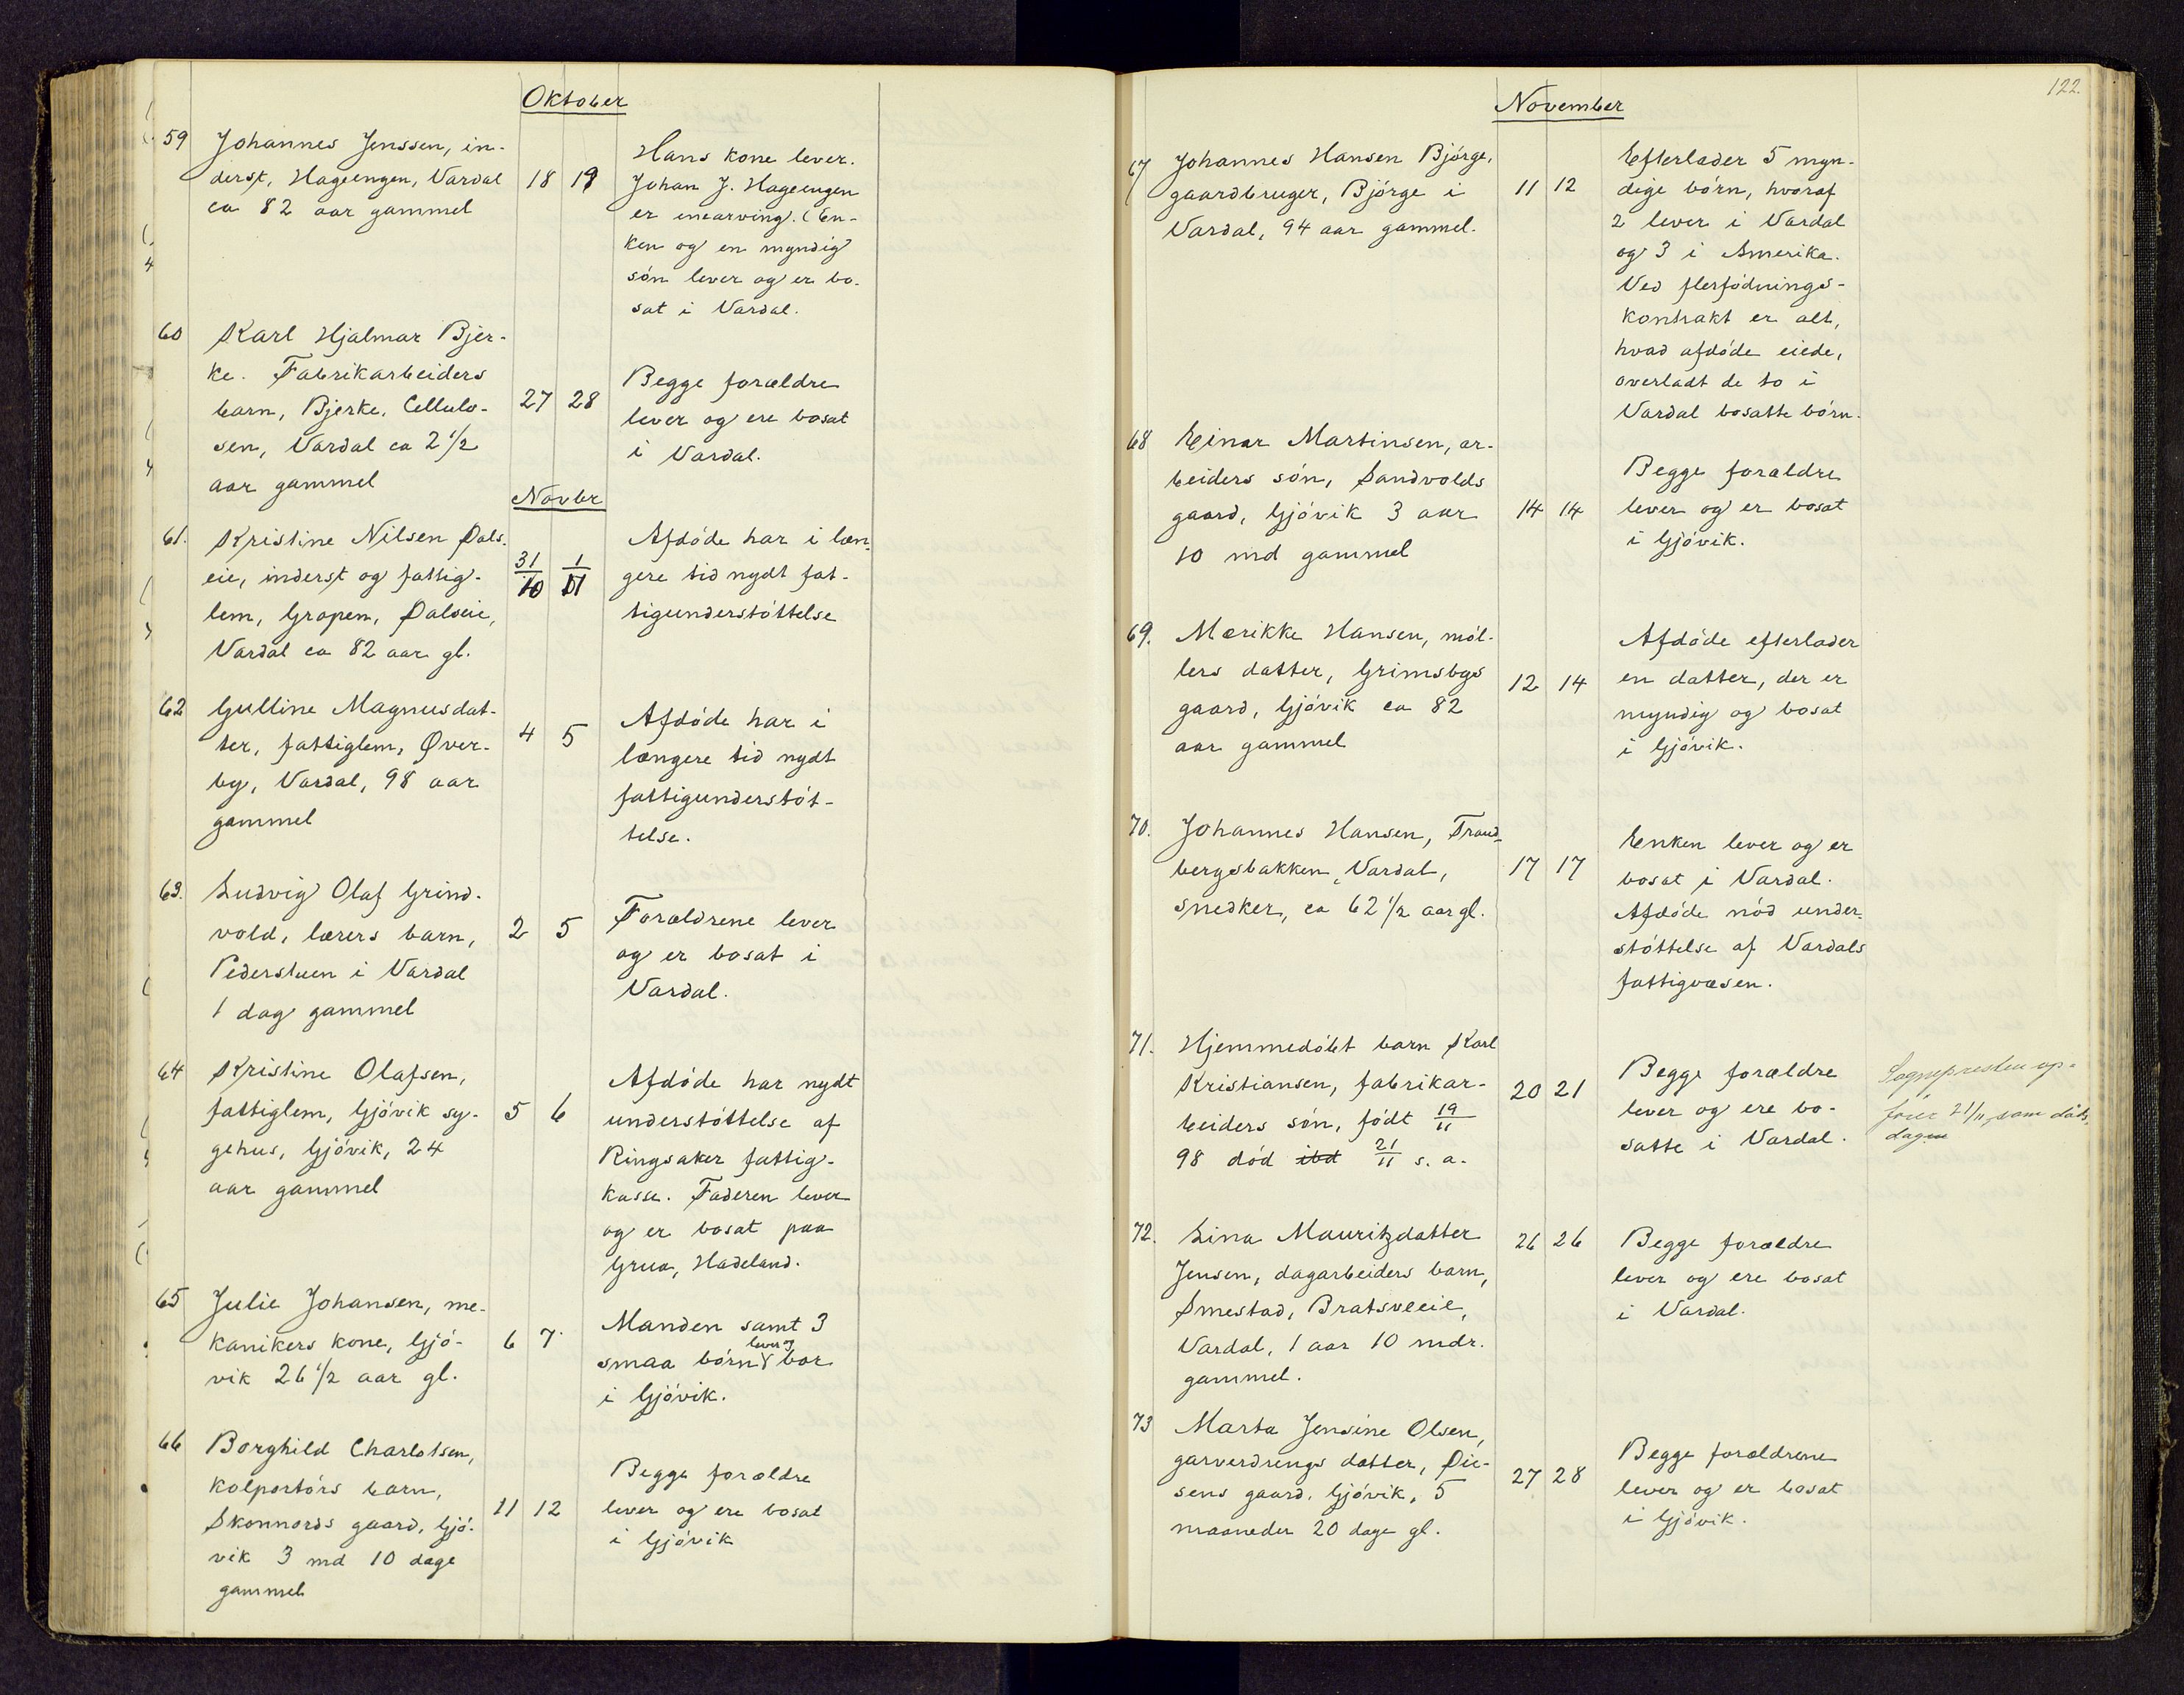 Oktober
59 Johannes Jenssen, in-
derst, Hageengen, Vardal
ca 82 aar gammel
18 19
Hans kone lever.
Johan J. Hageengen
er enearving. (En-
ken og en myndig
søn lever og er bo-
sat i Vardal.
60 Karl Hjalmar Bjer-
ke. Fabrikarbeiders
barn, Bjerke, Cellulo-
sen, Vardal ca 2 1/2
aar gammel
27 28
Begge forældre
lever og ere bosat
i Vardal.
Novbr
61. Kristine Nilsen Dals-
eie, inderst og fattig-
lem, Gropen, Dalseie,
Vardal ca 82 aar gl.
31/10 1/11
Afdøde har i læn-
gere tid nydt fat-
tigunderstøttelse
62 Gulline Magnusdat-
ter, fattiglem, Øver-
by, Vardal, 98 aar
gammel
4 5
Afdøde har i
længere tid nydt
fattigunderstøt-
telse.
63. Ludvig Olaf Grind-
vold, lærers barn,
Pederstuen i Vardal
1 dag gammel
2 5
Forældrene lever
og er bosat i
Vardal.
64 Kristine Olafsen,
fattiglem, Gjøvik sy-
gehus, Gjøvik, 24
aar gammel
5 6
Afdøde har nydt
understøttelse af
Ringsaker fattig-
kasse. Faderen lever
og er bosat paa
Grua, Hadeland.
65 Julie Johansen, me-
kanikers kone, Gjø-
vik 26 1/2 aar gl.
6 7
Manden samt 3
lever og
smaa børn bor
i Gjøvik.
66 Borghild Charlotsen,
kolportørs barn,
Skonnords gaard, Gjø-
vik 3 md 10 dage
gammel
11 12
Begge forældre
lever og ere bosat
i Gjøvik
122.
November
67 Johannes Hansen Bjørge,
gaardbruger, Bjørge i
Vardal, 94 aar gammel.
11 12
Efterlader 5 myn-
dige børn, hvoraf
2 lever i Vardal
og 3 i Amerika.
Ved flerfødnings-
kontrakt er alt,
hvad afdøde eiede,
overladt de to i
Vardal bosatte børn.
68 Einar Martinsen, ar-
beiders søn, Sandvolds
gaard, Gjøvik 3 aar
10 md gammel
14 14
Begge forældre
lever og er bosat
i Gjøvik.
69. Marikke Hansen, møl-
lers datter, Grimsbys
gaard, Gjøvik ca 82
aar gammel
12 14
Afdøde efterlader
en datter, der er
myndig og bosat
i Gjøvik.
70. Johannes Hansen, Trand-
bergsbakken, Vardal,
snedker, ca 62 1/2 aar gl.
17 17
Enken lever og er
bosat i Vardal.
Afdøde nød under-
støttelse af Vardals
fattigvæsen.
71. Hjemmedøbt barn Karl
Kristiansen, fabrikar-
beiders søn, født 19/11
98 død ibd 21/11 s. a.
20 21
Begge forældre
lever og ere bo-
satte i Vardal.
Sognepresten op-
fører 21/11 som døds-
dagen
72. Lina Mauritzdatter
Jensen, dagarbeiders barn,
Smestad, Bratsveeie,
Vardal, 1 aar 10 mdr.
gammel.
26 26
Begge forældre
lever og ere bosat
i Vardal.
73 Marta Jensine Olsen,
garverdrengs datter, Die-
sens gaard, Gjøvik, 5
maaneder 20 dage gl.
27 28
Begge forældrene
lever og er bosat
i Gjøvik.